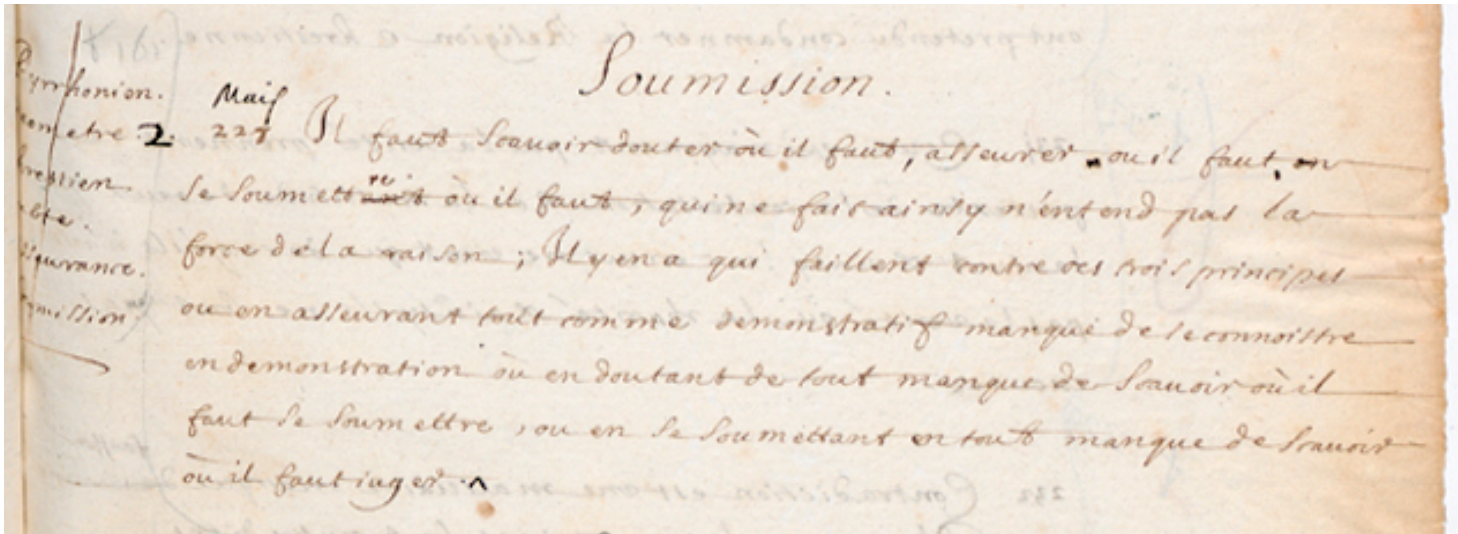 Soumission.
Pyrrhonien.
Geometre 2.
Chrestien.
doubte.
asseurance.
soumission.
Mais
225 Il faut scavoir douter où il faut, asseurer où il faut, en
se soumettant re où il faut, qui ne fait ainsy n'entend pas la
force de la raison ; Il y en a qui faillent contre ces trois principes
ou en asseurant tout comme demonstratif manque de se connoistre
en demonstration où en doutant de tout manque de scavoir où il
faut se soumettre, ou en se soumettant en tout manque de scavoir
où il faut iuger.